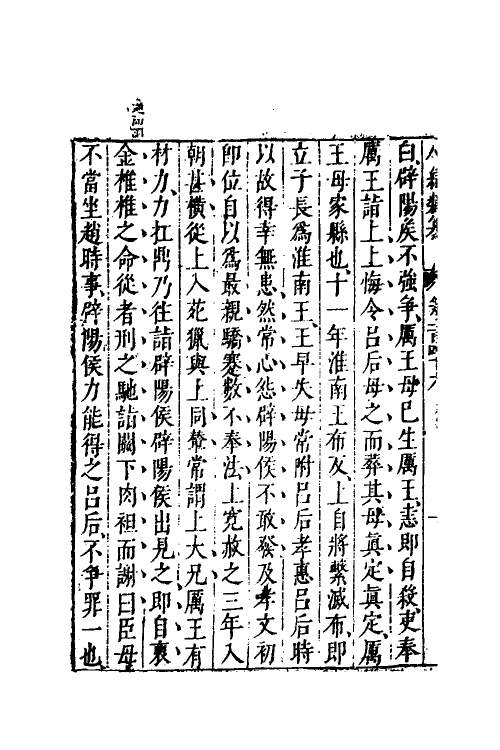 白辟陽矦不強爭厲王母已生厲王恚即自殺吏奉
厲王詣上上悔令呂后母之而葬其母眞定眞定厲
王母家縣也十一年淮南王布反上自將繫滅布即
立子長爲淮南王王早失母常附呂后孝惠呂后時
以故得幸無患然常心怨辟陽侯不敢發及孝文初
即位自以爲最親驕蹇數不奉法上寛赦之三年入
朝甚横從上入苑獵與上同輦常謂上大兄厲王有
材力力扛鼎乃往請辟陽侯辟陽侯出見之即自褎
金椎椎之命從者刑之馳詣闕下肉袒而謝曰臣母
不當坐趙時事辟陽侯力能得之呂后不爭罪一也